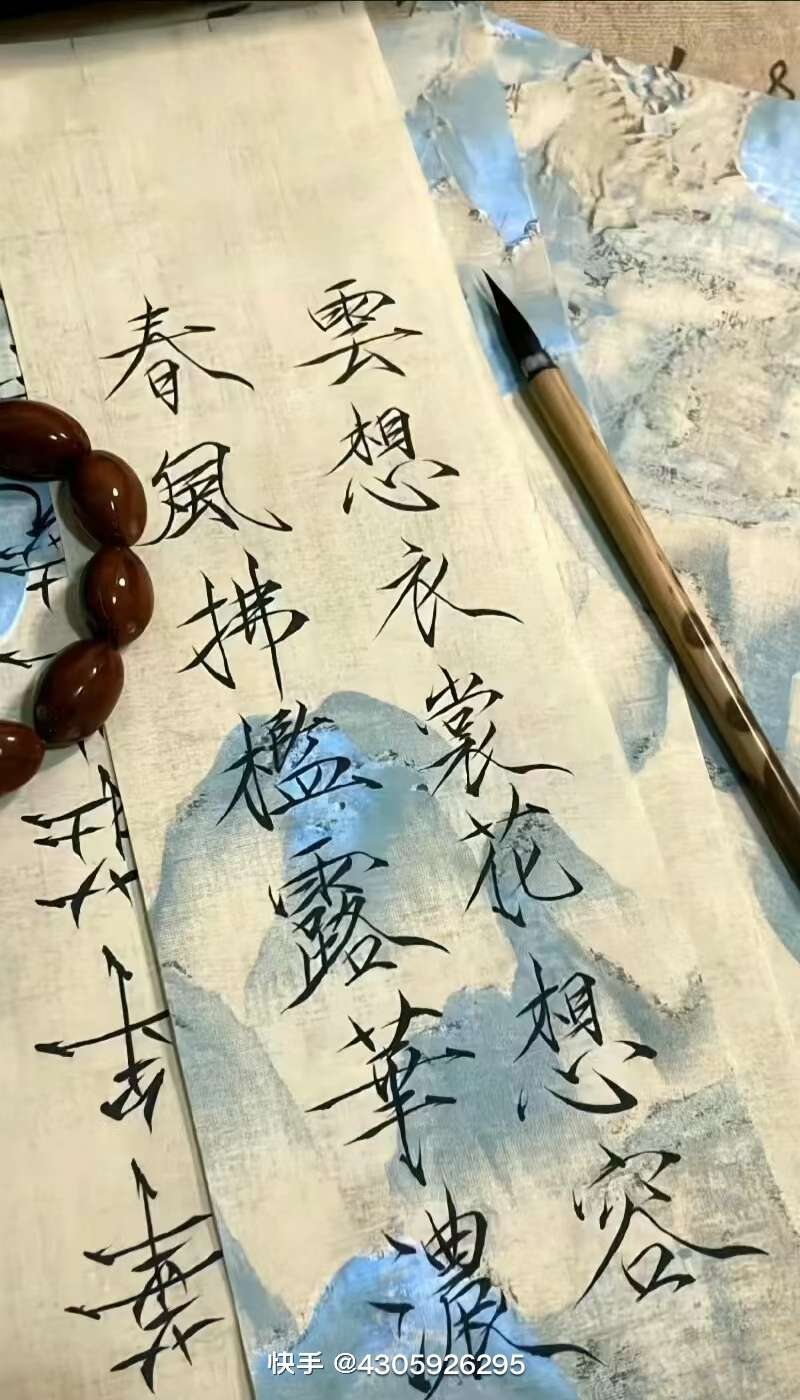 雲想衣裳花想容
春風拂檻露華濃
快手 @4305926295